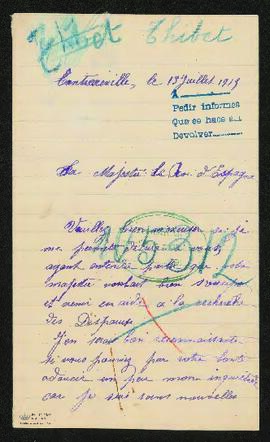 Thibet Thibet
Contrexéville, le 13 Juillet 1915
A
Pedir informes
Que se hace a
Devolver
Sa Majesté Le Roi d'Espagne
Veuillez bien m'excuser si je
me permet d'écrire à vous
ayant entendu parler que votre
majesté voulait bien s'occuper
et venir en aide à la recherche
des Disparus
J'en serai bien reconnaissante
si vous pouviez par votre bonté
adoucir un peu mon inquiétude
car je suis sans nouvelles